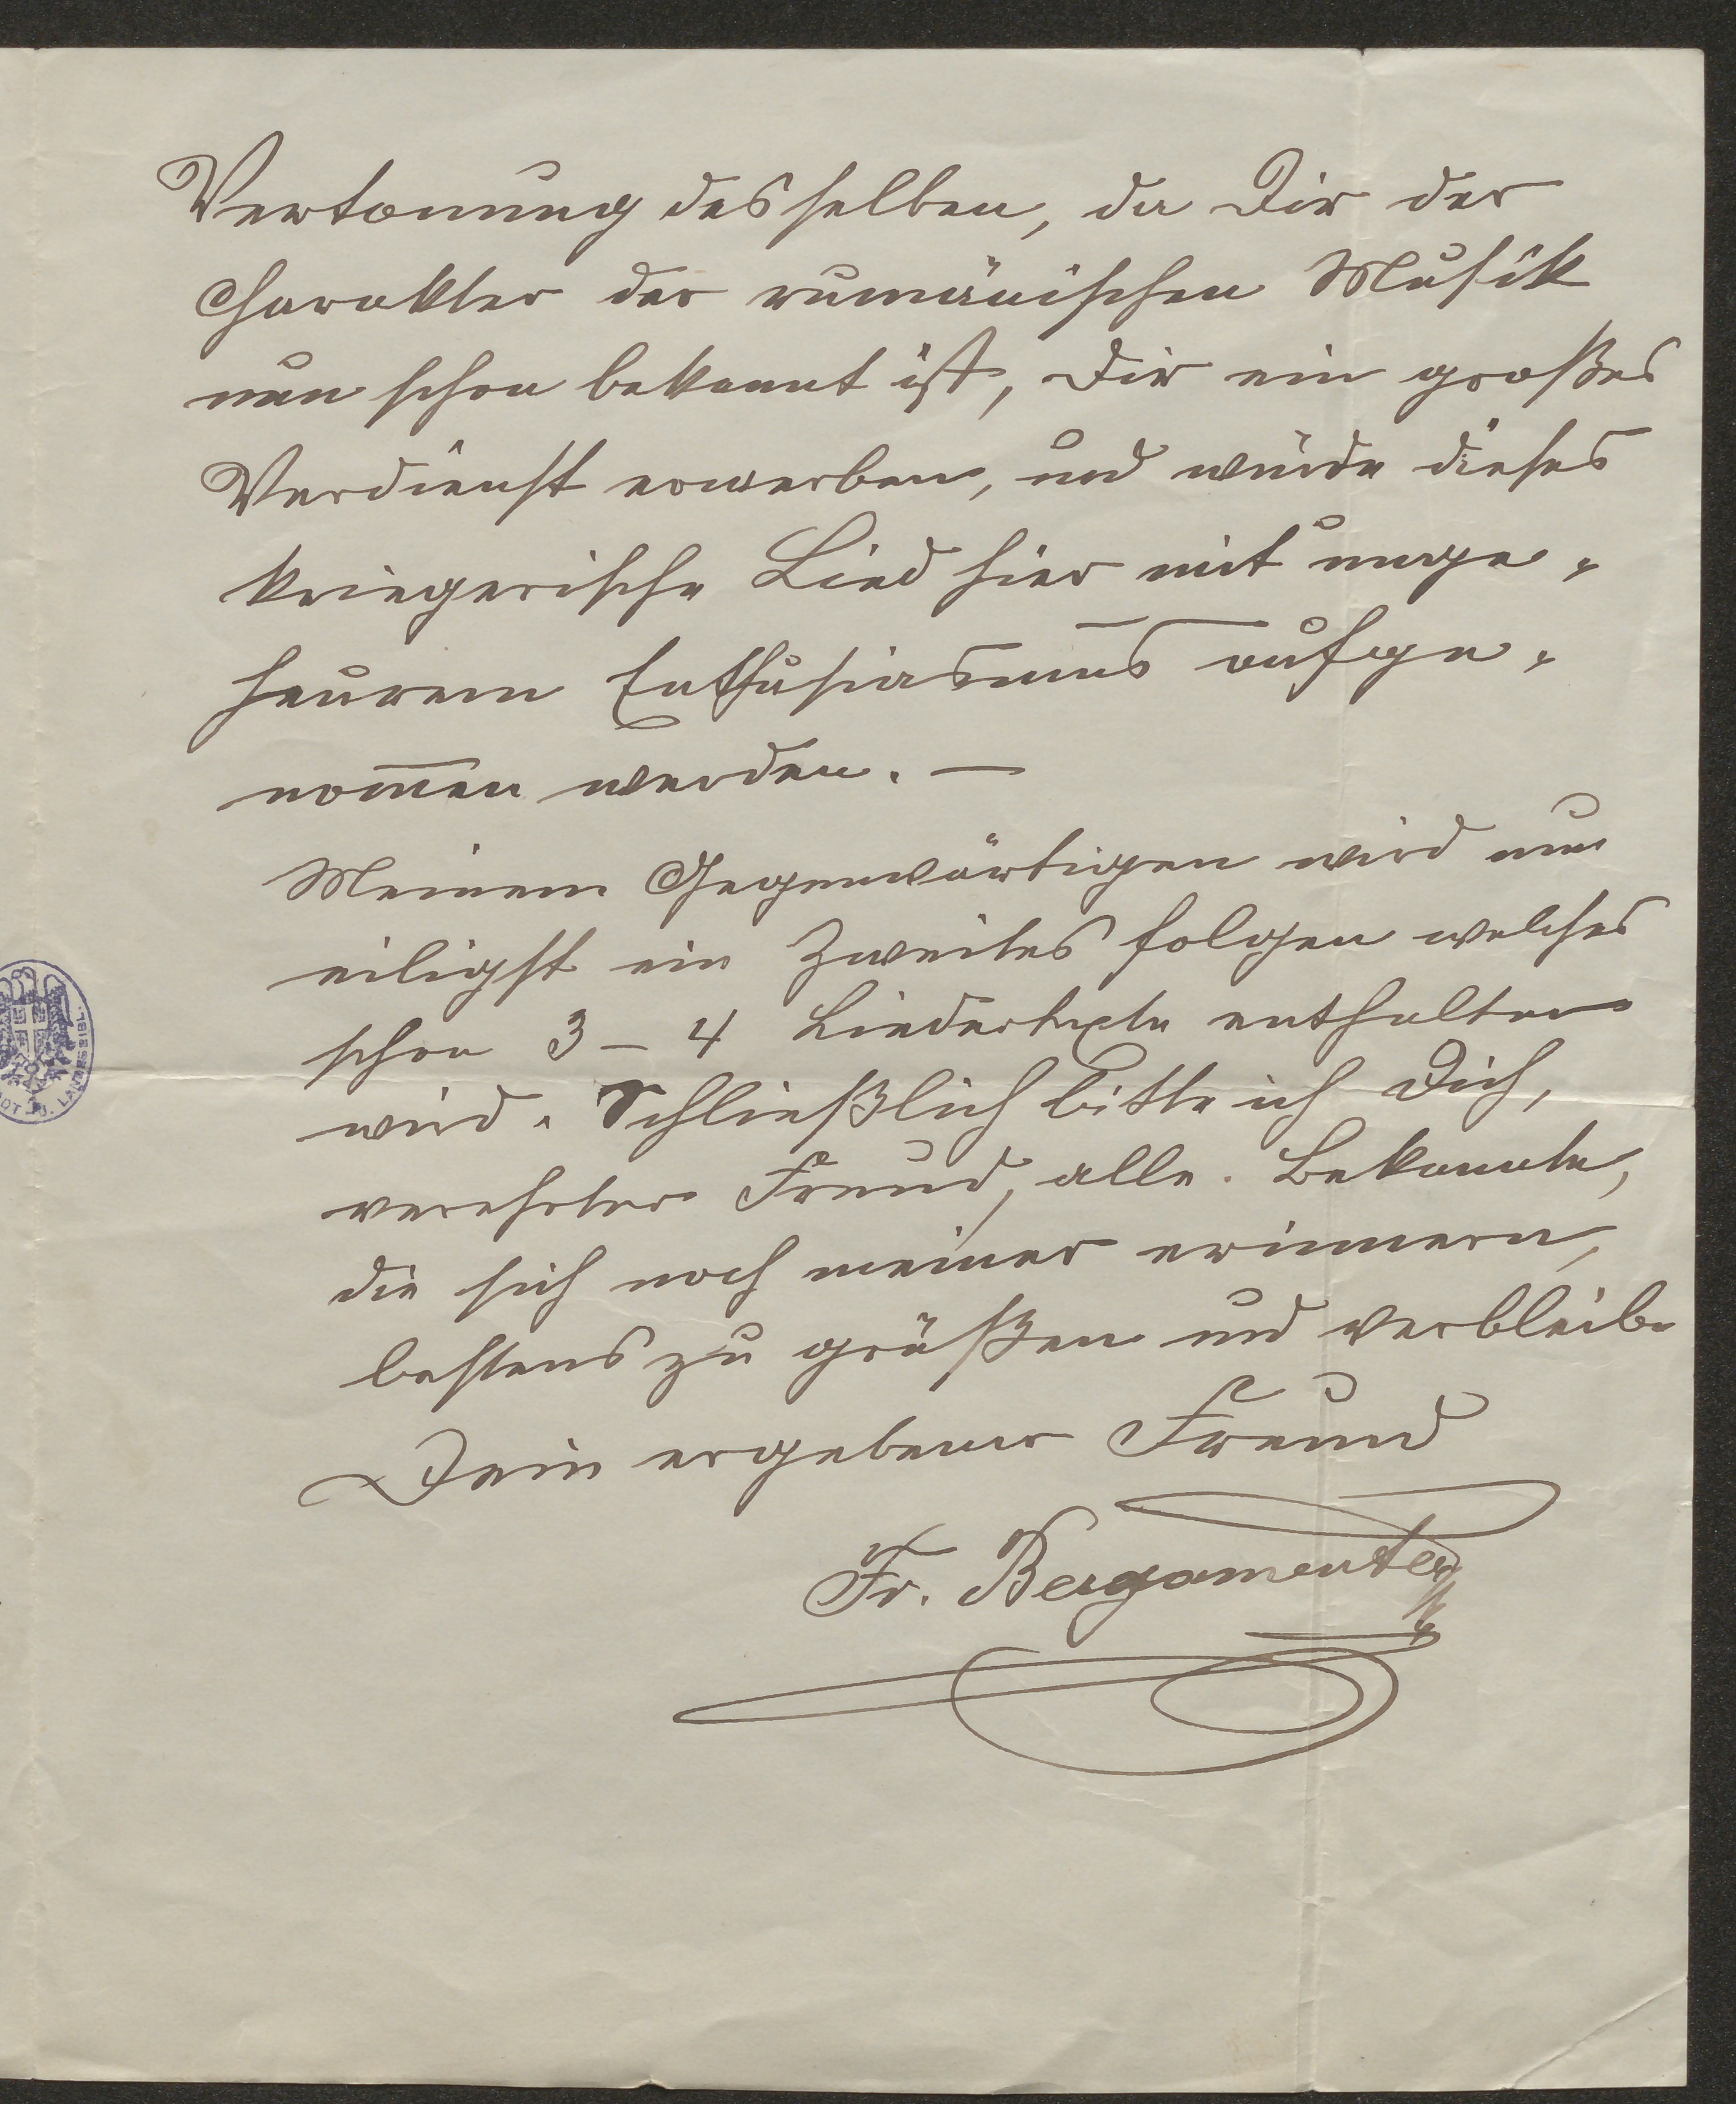 Vertonung desselben, da Dir der
Charakter der rumänischen Musik
nun schon bekannt ist, Dir ein großes
Verdienst erwerben, und würde dieses
kriegerische Lied hier mit unge-
heurem Enthusiasmus aufge-
nom̅en werden. —
Meinem Gegenwärtigen wird nun
eiligst ein Zweites folgen welches
schon 3 – 4 Liedertexte enthalten
wird. Schließlich bitte ich Dich,
verehrter Freund, alle Bekannte,
die sich noch meiner erinnern,
bestens zu grüßen und verbleibe
Dein ergebener Freund
Fr. Bergamenter